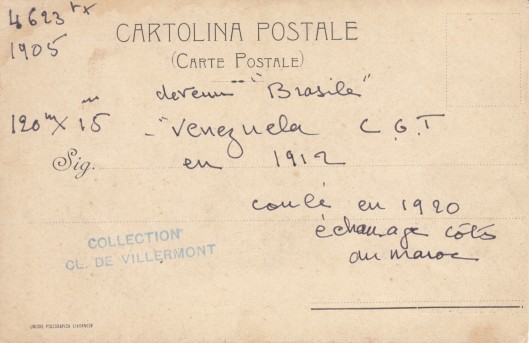 4623 tx
1905
CARTOLINA POSTALE
(CARTE POSTALE)
devenu "Brasile"
120m x 15m
- "Venezuela C G T
Sig. en 1912
coulé en 1920
échouage côtes
du maroc
COLLECTION
CL. DE VILLERMONT
UNIONE POLIGRAFICA LIVORNESE